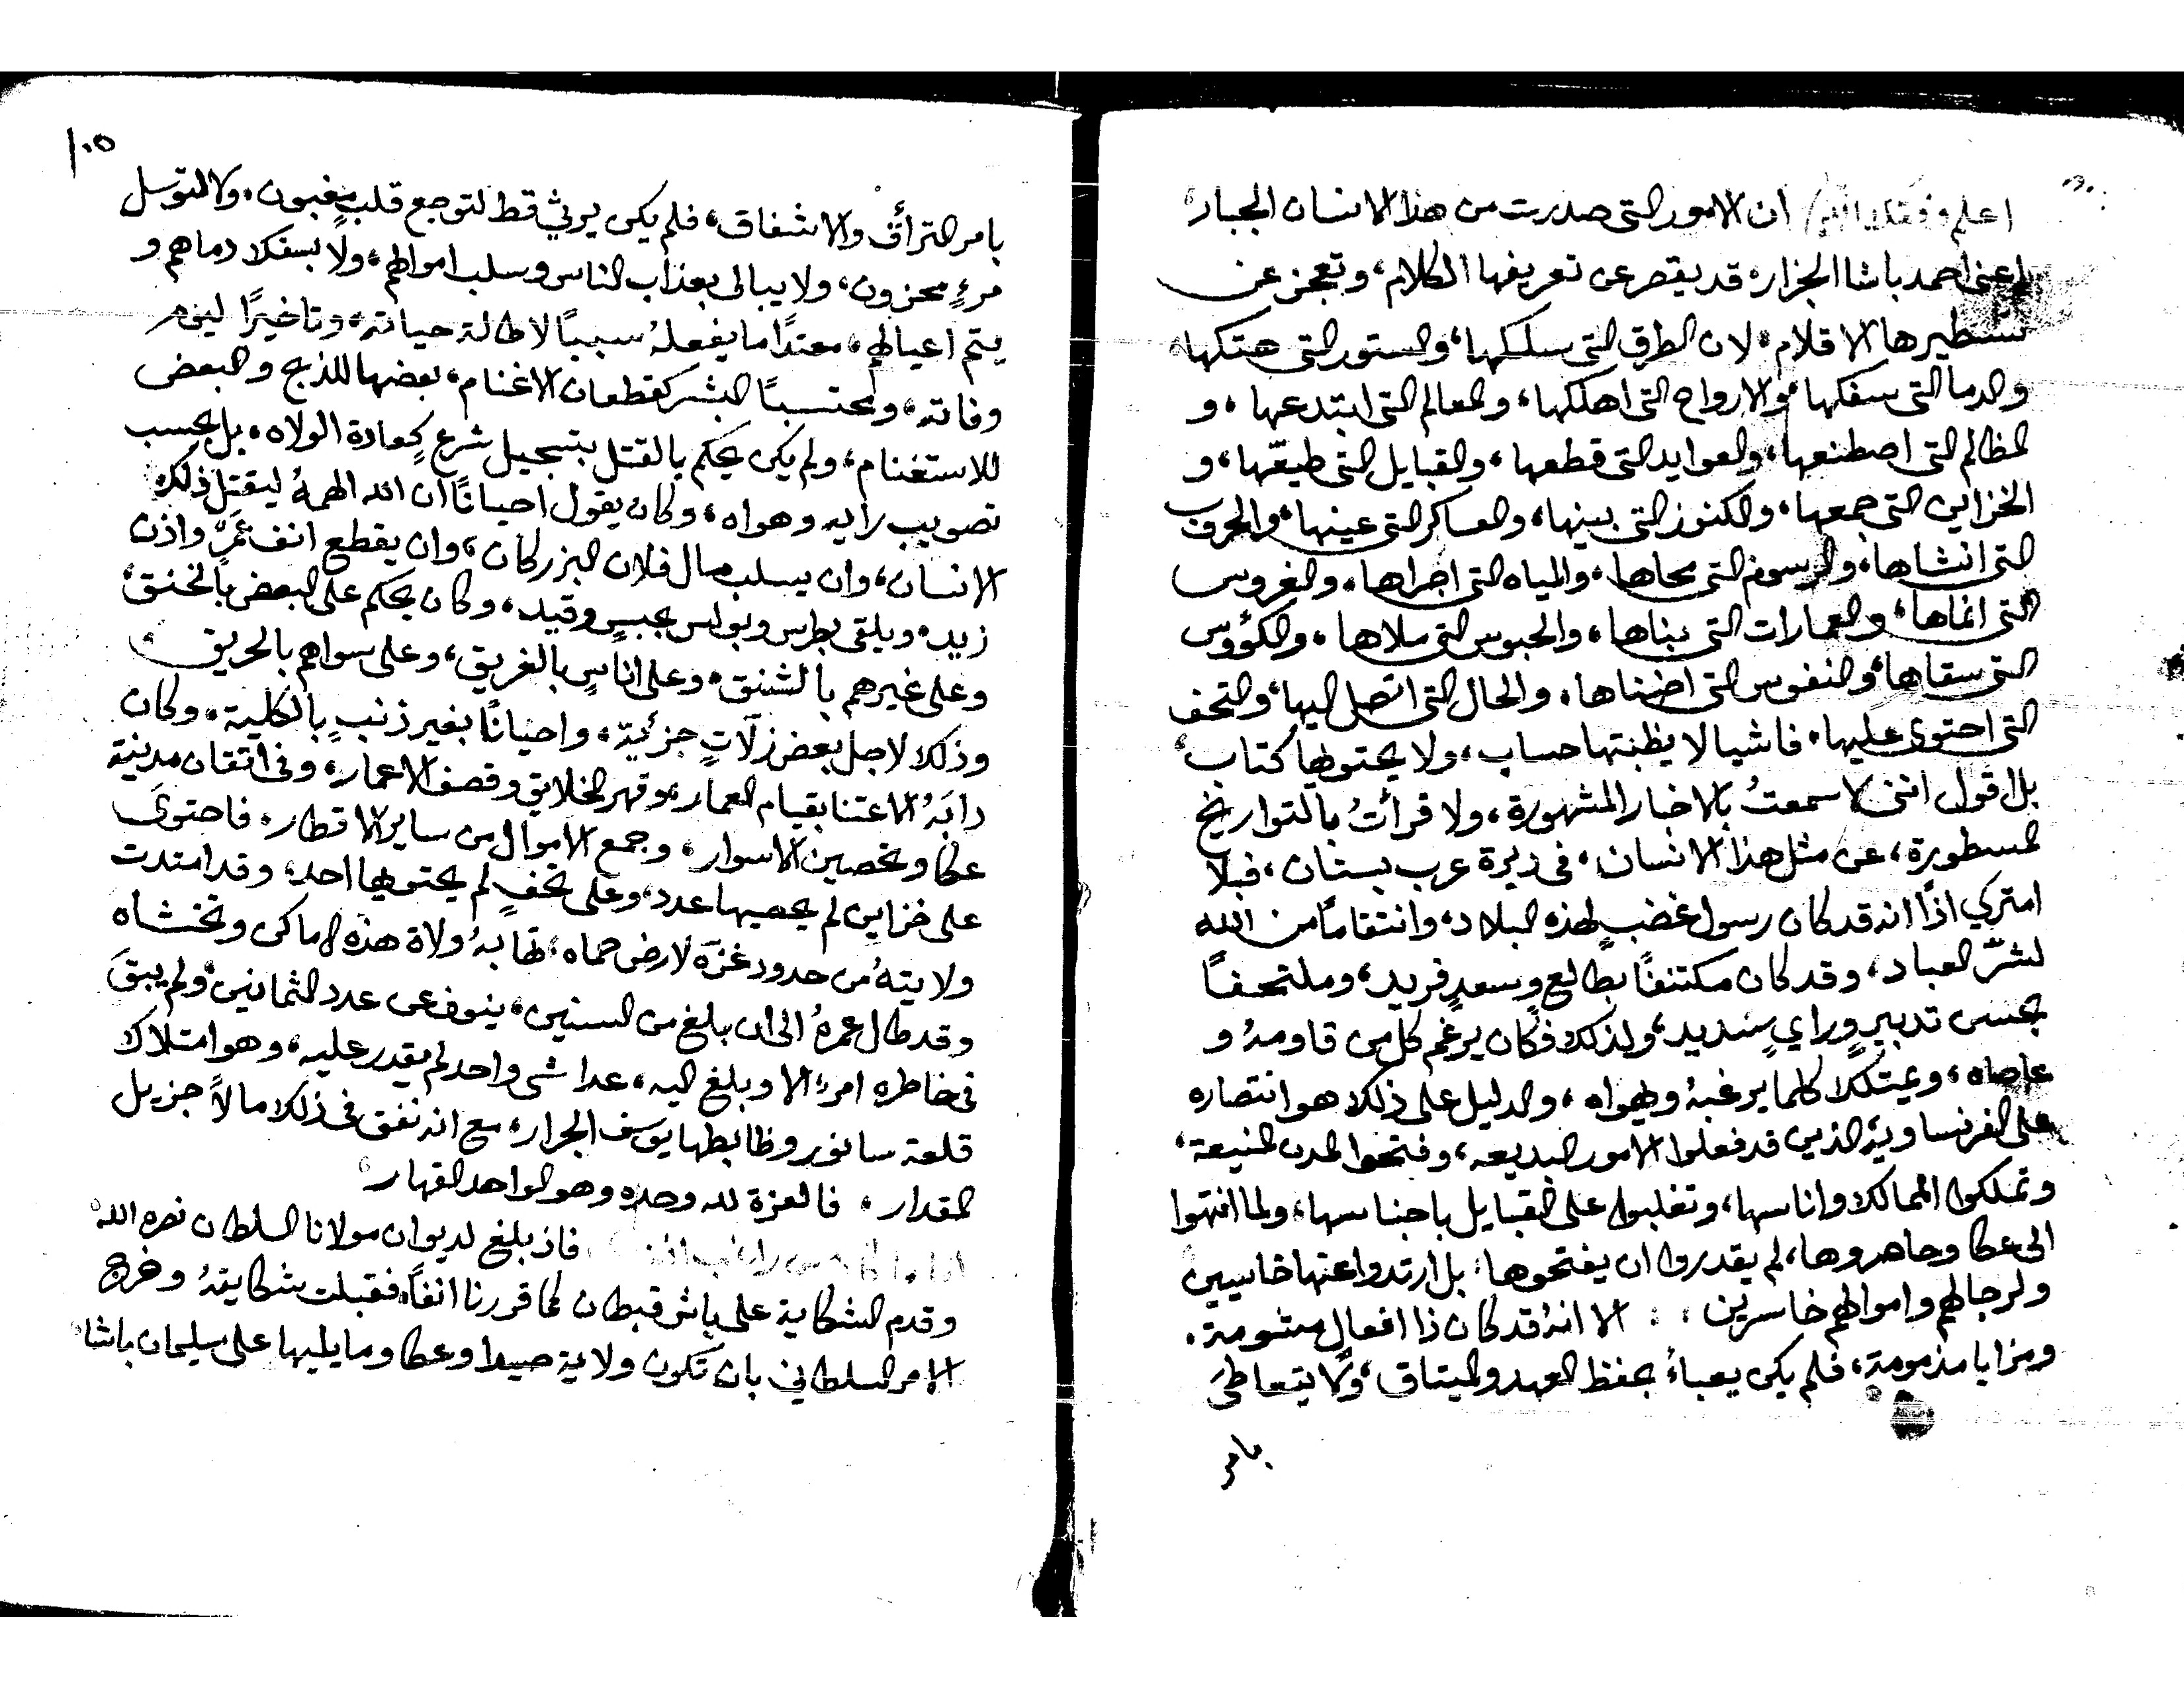 اعلم وفقك الله ان الامور التى صدرت من هذا الانسان الجبار،
اعنى احمد باشا الجزار، قد يقصر عن تعريفها الكلام، وتعجز عن
تسطيرها الاقلام، لان الطرق التى سلكها، والستور التى هتكها،
والدما التى سفكها، والارواح التى اهلكها، والمعالم التى ابتدعها، و
المظالم التى اصطنعها، والعوايد التى قطعها، والقبايل التى طيعّها، و
الخزاين التى جمعها، والكنوز التى بينها، والعساكر التى عينها، والحروب
التى انشاها، والرسوم التى محاها، والمياه التى اجراها، والغروس
التى انماها، والعمارات التى بناها، والحبوس التى ملاها، والكؤوس
التى سقاها، والنفوس التى اضناها، والحال التى اتصل اليها، والتحف
التى احتوى عليها، فاشيا لا يظبنتها حساب، ولا يحتويها كتاب،
بل اقول اننى لا سمعتُ بالاخبار المشهورة، ولا قرأتُ بالتواريخ
المسطورة، عن مثل هذا الانسان، فى ديرة عرب بستان، فبلا
امتركي اذًا انه قد كان رسول غضبٍ لهذه البلاد، وانتقامًا من الله
لشرّ العباد، وقد كان مكتنفًا بطالعٍ وسعدٍ فريد، وملتحفًا
بحسن تدبيرٍ ورايٍ سنديد، ولذلك فكان يرغم كل من قاومهُ و
عاصاه، ويمتلك كلما يرغبهُ ويهواه، والدليل على ذلك هو انتصاره
على الفرنساوية الذين قد فعلوا الامور البديعه، وفتحوا المدن المنيعة،
وتملكوا الممالك واناسها، وتغلبوا على القبايل باجناسها، ولما انتهوا
الى عكا وحاصروها، لم يقدروا ان يفتحوها، بل ارتدوا عنها خاسيين
ولرجالهم واموالهم خاسرين، الا انهُ قد كان ذا افعالٍ مشومة،
ومزايا مذمومة، فلم يكن يعباءُ بحفظ العهد والميتاق، ولا يتعاطىَ
بامر
١٠٥
بامر الترأف والاشفاق، فلم يكن يرثي قط لتوجع قلبٍ مغبون، ولا لتوسل
مرءٍ محزون، ولا يبالى بعذاب الناس وسلب اموالهم، ولا بسفك دماهم و
يتم اعيالهم، معتدًا ما يفعلهُ سببًا لاطالة حياته، وتاخيرًا ليوم
وفاته، ومحتسبًا البشر كقطعان الاغنام، بعضها للذبح والبعض
للاستغنام، ولم يكن يحكم بالقتل بتسجيل شرعٍ كعادة الولاه، بل بحسب
تصويب رايه وهواه، وكان يقول احيانًا ان الله الهمهُ ليقتل ذلك
الانسان، وان يسلب مال فلان البزركان، وان يقطع انف عَمرٌ واذن
زيد، ويلقى بطرس وبولس بحبسٍ وقيد، وكان يحكم على البعض بالخنق،
وعلى غيرهم بالشنق، وعلى اناسٍ بالغريق، وعلى سواهم بالحريق
وذلك لاجل بعض زلّاتٍ جزئية، واحيانًا بغير ذنبٍ بالكلية، وكان
دابهُ الاعتنا بقيام العمار، وقهر الخلايق وقصف الاعمار، وفى اتقان مدينة
عكا وتحصين الاسوار، وجمع الاموال من ساير الاقطار، فاحتوىَ
على خزاين لم يحصيها عدد، وعلى تحفٍ لم يحتويها احد، وقد امتدت
ولايتهُ من حدود غزة لارض حماه، تهابهُ ولاة هذه الاماكن وتخشاه
وقد طال عمرهُ الى ان بلغ من السنين، ينوف عن عدد الثمانين، ولم يبقَ
فى خاطره امرءٌ الا وبلغ اليه، عدا شى واحد لم يقدر عليه، وهو امتلاك
قلعة سانور وظابطها يوسف الجرار، مع انه نفق فى ذلك مالًا جزيل
المقدار، فالعزة لله وحده وهو الواحد القهار
فاذ بلغ لديوان مولانا السلطان نصره الله
وقدم الشكاية على باش قبطان كما قررنا انفًا، فقبلت شكايتهُ وخرج
الامر السلطاني بان تكون ولاية صيدا وعكا وما يليها على سليمان باشا